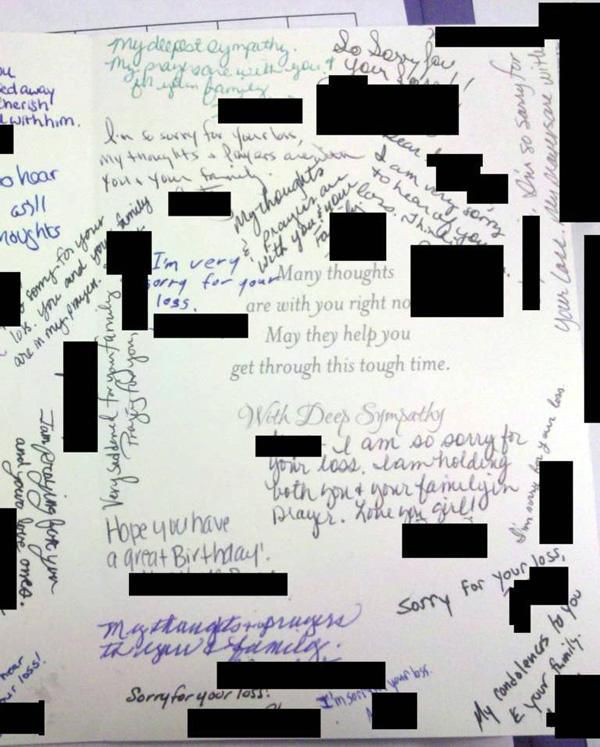 ed away
cherish
with him.
o hear
as//
noughts
My deepest sympathy.
My prays are with you &
your family
So Sorry for
your Loss!!
I'm so sorry for
your Loss my prayers are with
I'm so sorry for your loss,
my thoughts & Prayers are
you & your family.
My thoughts
& prayers are
with you & your
I am very sorry
to hear of your
loss.
sorry for your
loss. you and your family
are in my prayer.
I'm very
sorry for your
loss.
Many thoughts
are with you right no
May they help you
get through this tough time.
With Deep Sympathy
Very saddened for your family
Praying for you,
I am so sorry for
your loss. I am holding
both you & your family in
prayer. Love you girl!
I'm sorry for your loss.
I am praying for you
and your love ones.
Hope you have
a great Birthday!
Sorry for your loss,
My thoughts & prayers
to you & family.
My condolences to you
& your family.
hear
ur loss!
Sorry for your loss!
I'm sorry your loss.